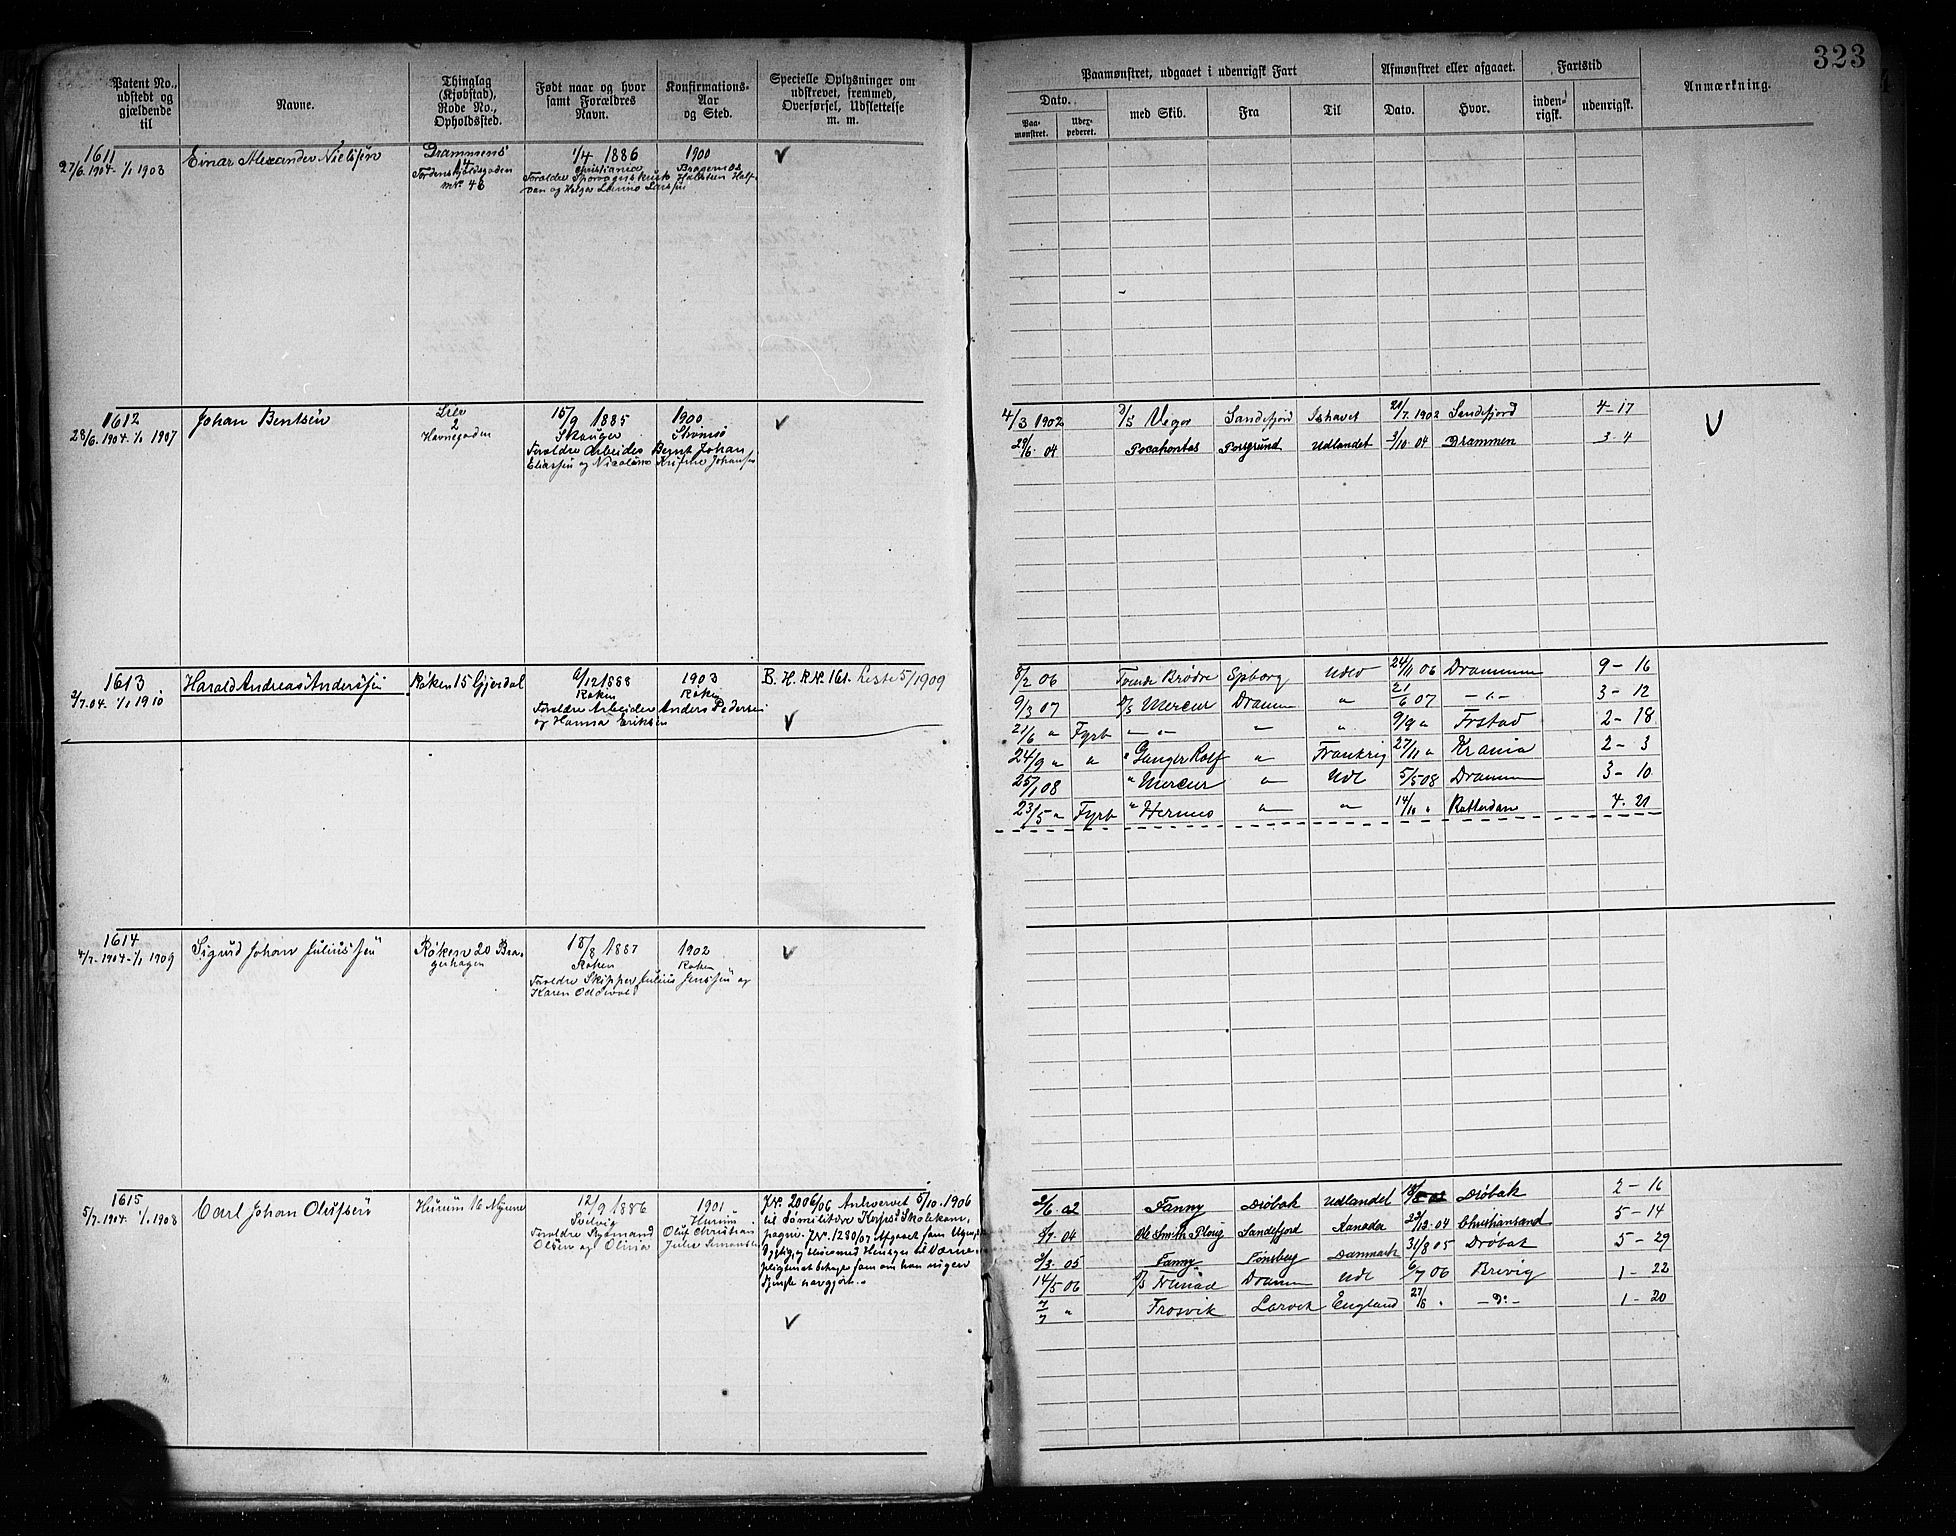 323
Patent No., udstedt og gjældende til
Navne.
Thinglag (Kjøbstad), Rode No., Opholdssted.
Født naar og hvor samt Forældres Navn.
Konfirmations-Aar og Sted.
Specielle Oplysninger om udskrevet, fremmed, Overførsel, Udslettelse m. m.
Paamønstret, udgaaet i udenrigsk Fart
Afmønstret eller afgaaet.
Fartstid
Anmærkning.
Dato.
Paa-mønstret.
med Skib.
Fra
Til
Dato.
Hvor.
inden-rigsk.
udenrigsk.
1611
27/6 1904 - 1/1 1903
Einar Alexander Nielssen
Drammens
14
1/4 1886
Christiania
1900
Bragernes
1612
28/6 1904 1/1 1907
Johan Bentsen
Lier
2
Havnegaden
15/9 1885
Skauger
Foreldre Arbeider Bernt Johan
Eliassen og Nicoline
1900
Strømsø
4/3 1902 Vega Sandefjord Ishavet 21/7 1902 Sandefjord 4-17
29/6 04 Pocahontas Porsgrund Udlandet 3/10 04 Drammen 3-4
1613
2/7 04 1/1 1910
Harald Andreas Anderssen
Røken 15 Gjerdal
6/12 1888
Røken
Foreldre Arbeider Anders Pedersen
og Hanna Eriksen
1903
Røken
B. H. R. Nr. 161. Liste 5/1909
8/2 06 Tvende Brødre Spborg Udld 24/11 06 Drammen 9-16
9/3 07 Mercur Dramm " 21/6 07 -"- 3-12
21/6 " Fyrb - " - " " 9/9 " Frstad 2-18
24/9 " " " Ganger Rolf " Frankrig 27/11 " Krania 2-3
25/1 08 " Mercur " Udl 5/5 08 Drammen 3-10
23/5 " Fyrb " Hermes " " 14/10 " Rotterdam 4-21
1614
4/7 1904 - 1/1 1909
Sigurd Johan Juliussen
Røken 20 Bra-
gerhagen
18/8 1887
Røken
Foreldre Skipper Julius Jenssen og
Karen Oddevold
1902
Røken
1615
5/7 1904 1/1 1908
Carl Johan Olufsen
Hurum 16
12/9 1886
Svelvig
Foreldre
Olsen og Olina
1901
Hurum
Oluf Christian
J.Nr. 2006/06 Anhvervet 5/10 1906
til Sømilitære Korpsets Skolekom-
pagni. J.Nr. 1280/07 Afgaaet som
2/6 02 Fanny Drøbak Udlandet Drøbak 2-16
04 Ole Smith Ploug Sandefjord Kanada 04 Christiansand 5-14
2/3 05 Fanny Tønsberg Danmark 31/8 05 Drøbak 5-29
14/5 06 Dramm Udl 6/7 06 Brevig 1-22
7/7 " Frosvik Larvik England 27/8 " -"- 1-20